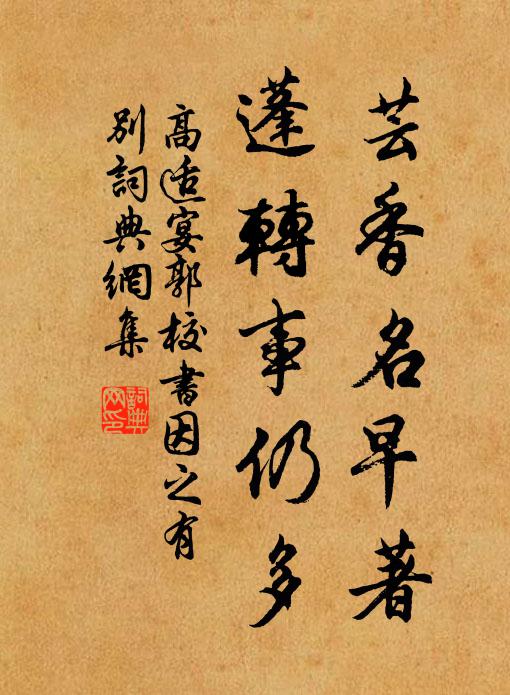 芸香名早著
蓬轉事仍多
高适宴郭校書因之有
別詞典網集
詞典網印